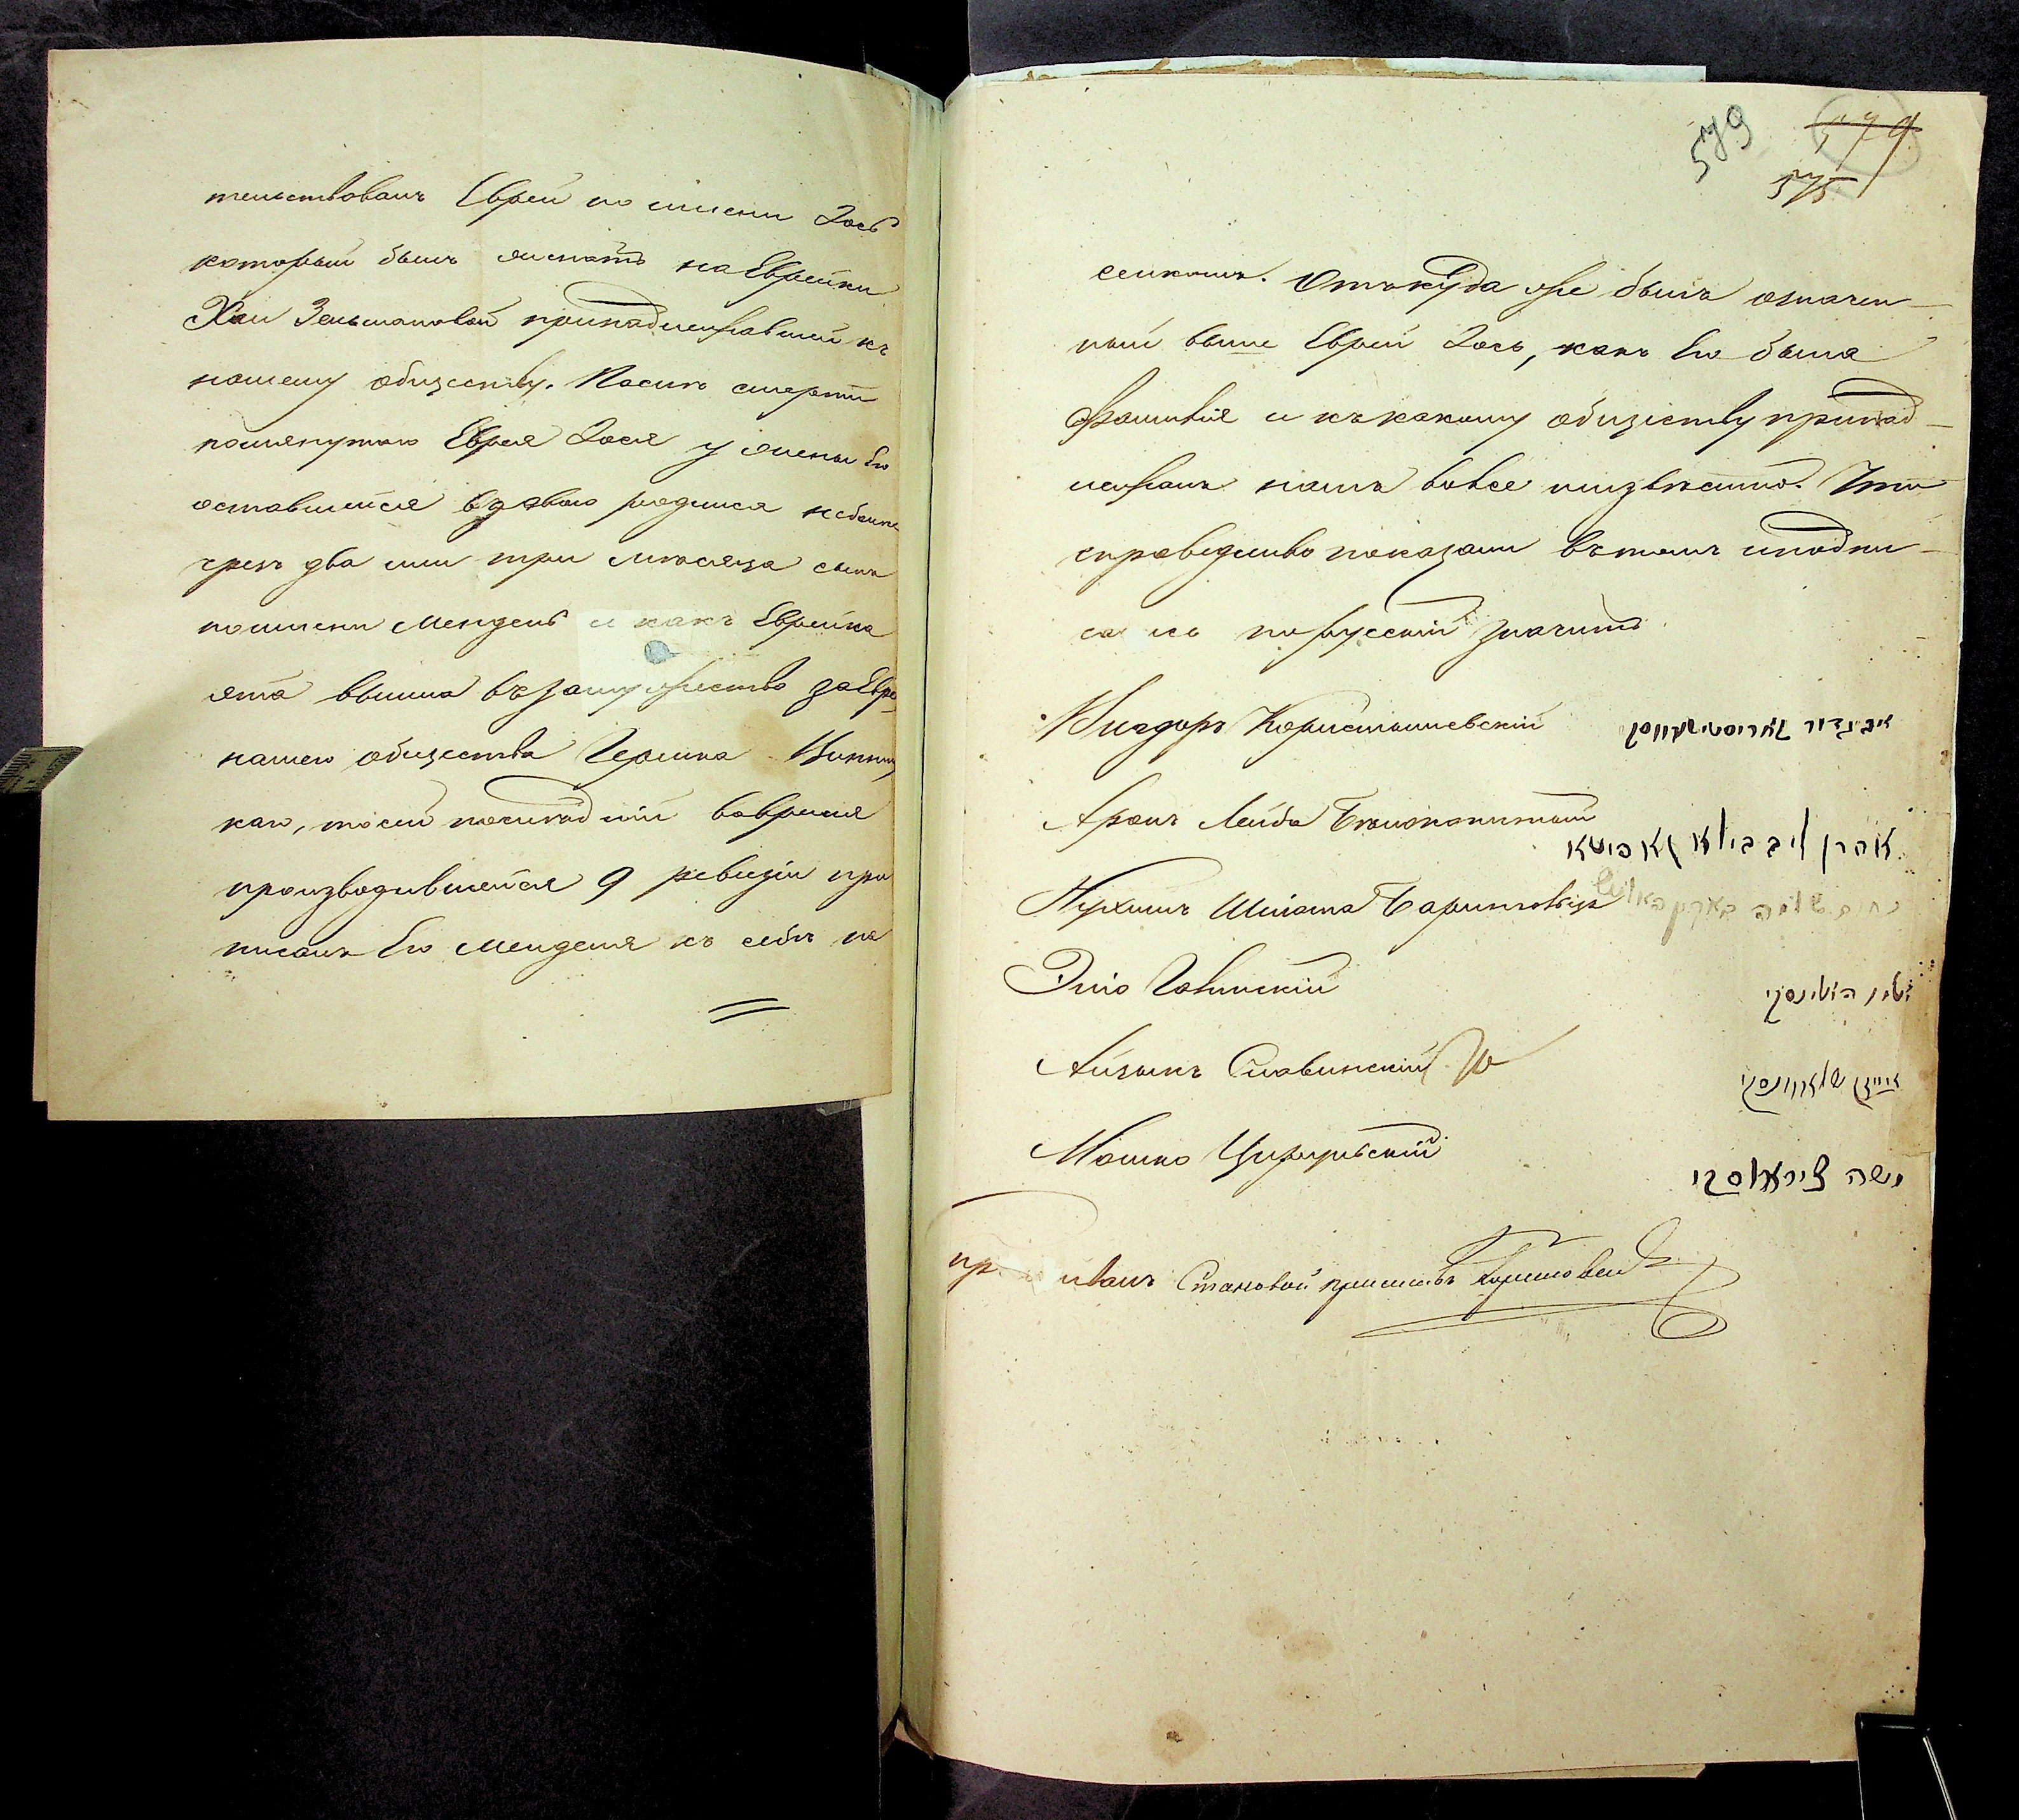 тельствовалъ Еврей по имени Зось
который былъ женатъ на Еврейки
Хаи Зельмановой принадлежавшей къ
нашему обществу. После смерти
помянутаго Еврея Зося у жены его
оставшейся вдовою родился небольше
чрезъ два или три месяца сынъ
поимени Мендель и какъ Еврейка
эта вышла въ замужество за Евре-
нашего общества Гершка
каго, то сей последній вовремя
производившейся 9 ревизіи при
писалъ Его Менделя къ себе на
=
579
579
575
сенкомъ. Откуда же былъ означен-
ный выше Еврей Зось, какъ Его была
Фамилія и къ какому обществу принад-
лежалъ намъ вовсе неизвестно. Что
справедливо показали въ томъ и подпи-
сались по русскій значитъ
Вигдоръ Користышевскій
Аронъ Лейба Белокопытый
אהרן ליב בילא קאפיטא
Нухимъ Шліома
נחום שלמה
Элio Голинскій
Айзыкъ Славинскій
אייזק שלאווינסקי
Мошко Цирульскій
משה צירולסקי
Становой приставъ